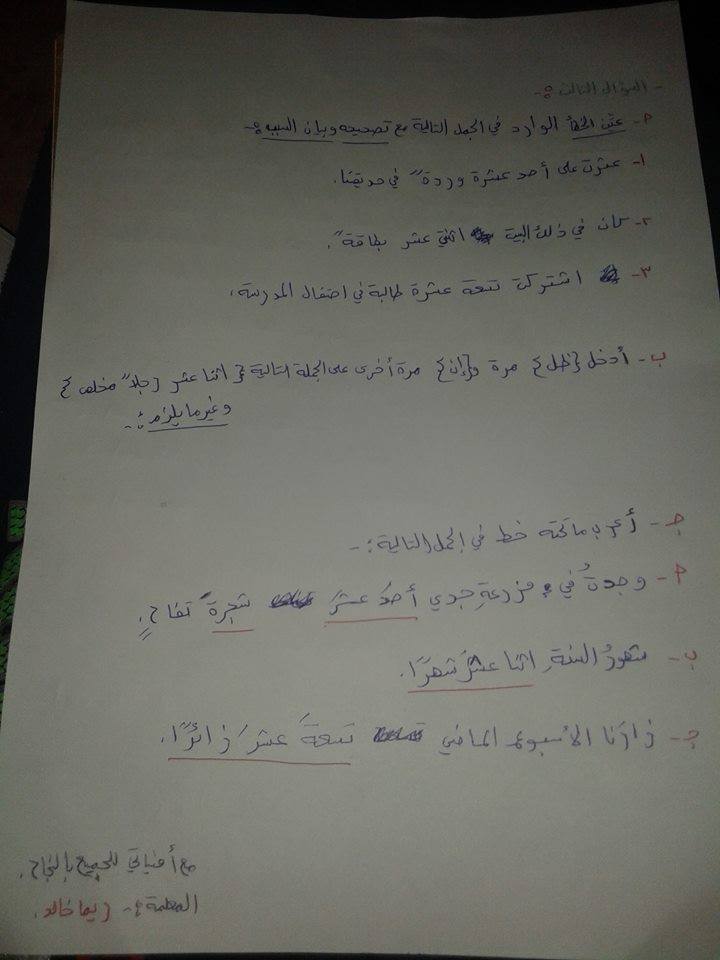 - السؤال الثالث :-
أ- عيّن الخطأ الوارد في الجمل التالية مع تصحيحه وبيان السبب :-
١- عثرت على أحد عشرة وردةً في حديقتنا.
٢- كان في ذلك البيت اثني عشر بطاقةً.
٣- اشتركت تسعة عشرة طالبة في احتفال المدرسة.
ب- أدخل {ظل} مرة و{إن} مرة أخرى على الجملة التالية {اثنا عشر رجلاً مخلص}
وغير ما يلزم :-
ج- أعرب ما تحته خط في الجمل التالية :-
أ- وجدتُ في مزرعةِ جدي أحدَ عشرَ شجرةً تفاحٍ.
ب- شهورُ السنةِ اثنا عشرَ شهرًا.
ج- زارَنا الأسبوع الماضي تسعةَ عشرَ زائرًا.
مع أمنياتي للجميع بالنجاح.
المعلمة :- ريما خالد.